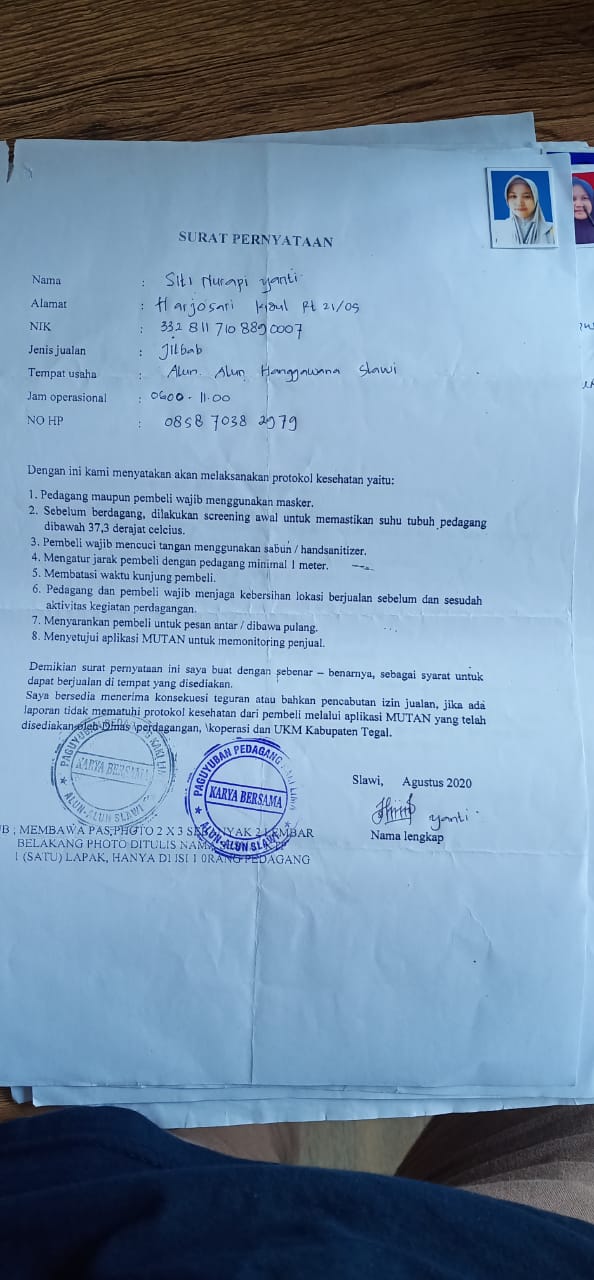 SURAT PERNYATAAN
Nama : Siti Nurapi yanti
Alamat : Harjosari Kidul Rt 21/05
NIK : 332 811 710 889 0007
Jenis jualan : Jilbab
Tempat usaha : Alun Alun Hanggawana Slawi
Jam operasional : 0600 - 11.00
NO HP : 0858 7038 2979
Dengan ini kami menyatakan akan melaksanakan protokol kesehatan yaitu:
1. Pedagang maupun pembeli wajib menggunakan masker.
2. Sebelum berdagang, dilakukan screening awal untuk memastikan suhu tubuh pedagang
dibawah 37,3 derajat celcius.
3. Pembeli wajib mencuci tangan menggunakan sabun / handsanitizer.
4. Mengatur jarak pembeli dengan pedagang minimal 1 meter.
5. Membatasi waktu kunjung pembeli.
6. Pedagang dan pembeli wajib menjaga kebersihan lokasi berjualan sebelum dan sesudah
aktivitas kegiatan perdagangan.
7. Menyarankan pembeli untuk pesan antar / dibawa pulang.
8. Menyetujui aplikasi MUTAN untuk memonitoring penjual.
Demikian surat pernyataan ini saya buat dengan sebenar – benarnya, sebagai syarat untuk
dapat berjualan di tempat yang disediakan.
Saya bersedia menerima konsekuesi teguran atau bahkan pencabutan izin jualan, jika ada
laporan tidak mematuhi protokol kesehatan dari pembeli melalui aplikasi MUTAN yang telah
disediakan oleh Dinas \perdagangan, \koperasi dan UKM Kabupaten Tegal.
PAGUYUBAN PEDAGANG KAKI LIMA
KARYA BERSAMA
ALUN-ALUN SLAWI
PAGUYUBAN PEDAGANG KAKI LIMA
KARYA BERSAMA
ALUN-ALUN SLAWI
Slawi, Agustus 2020
yanti
Nama lengkap
B ; MEMBAWA PAS PHOTO 2 X 3 2 LEMBAR
BELAKANG PHOTO DITULIS NAMA
1 (SATU) LAPAK, HANYA DI ISI 1 0RANG PEDAGANG